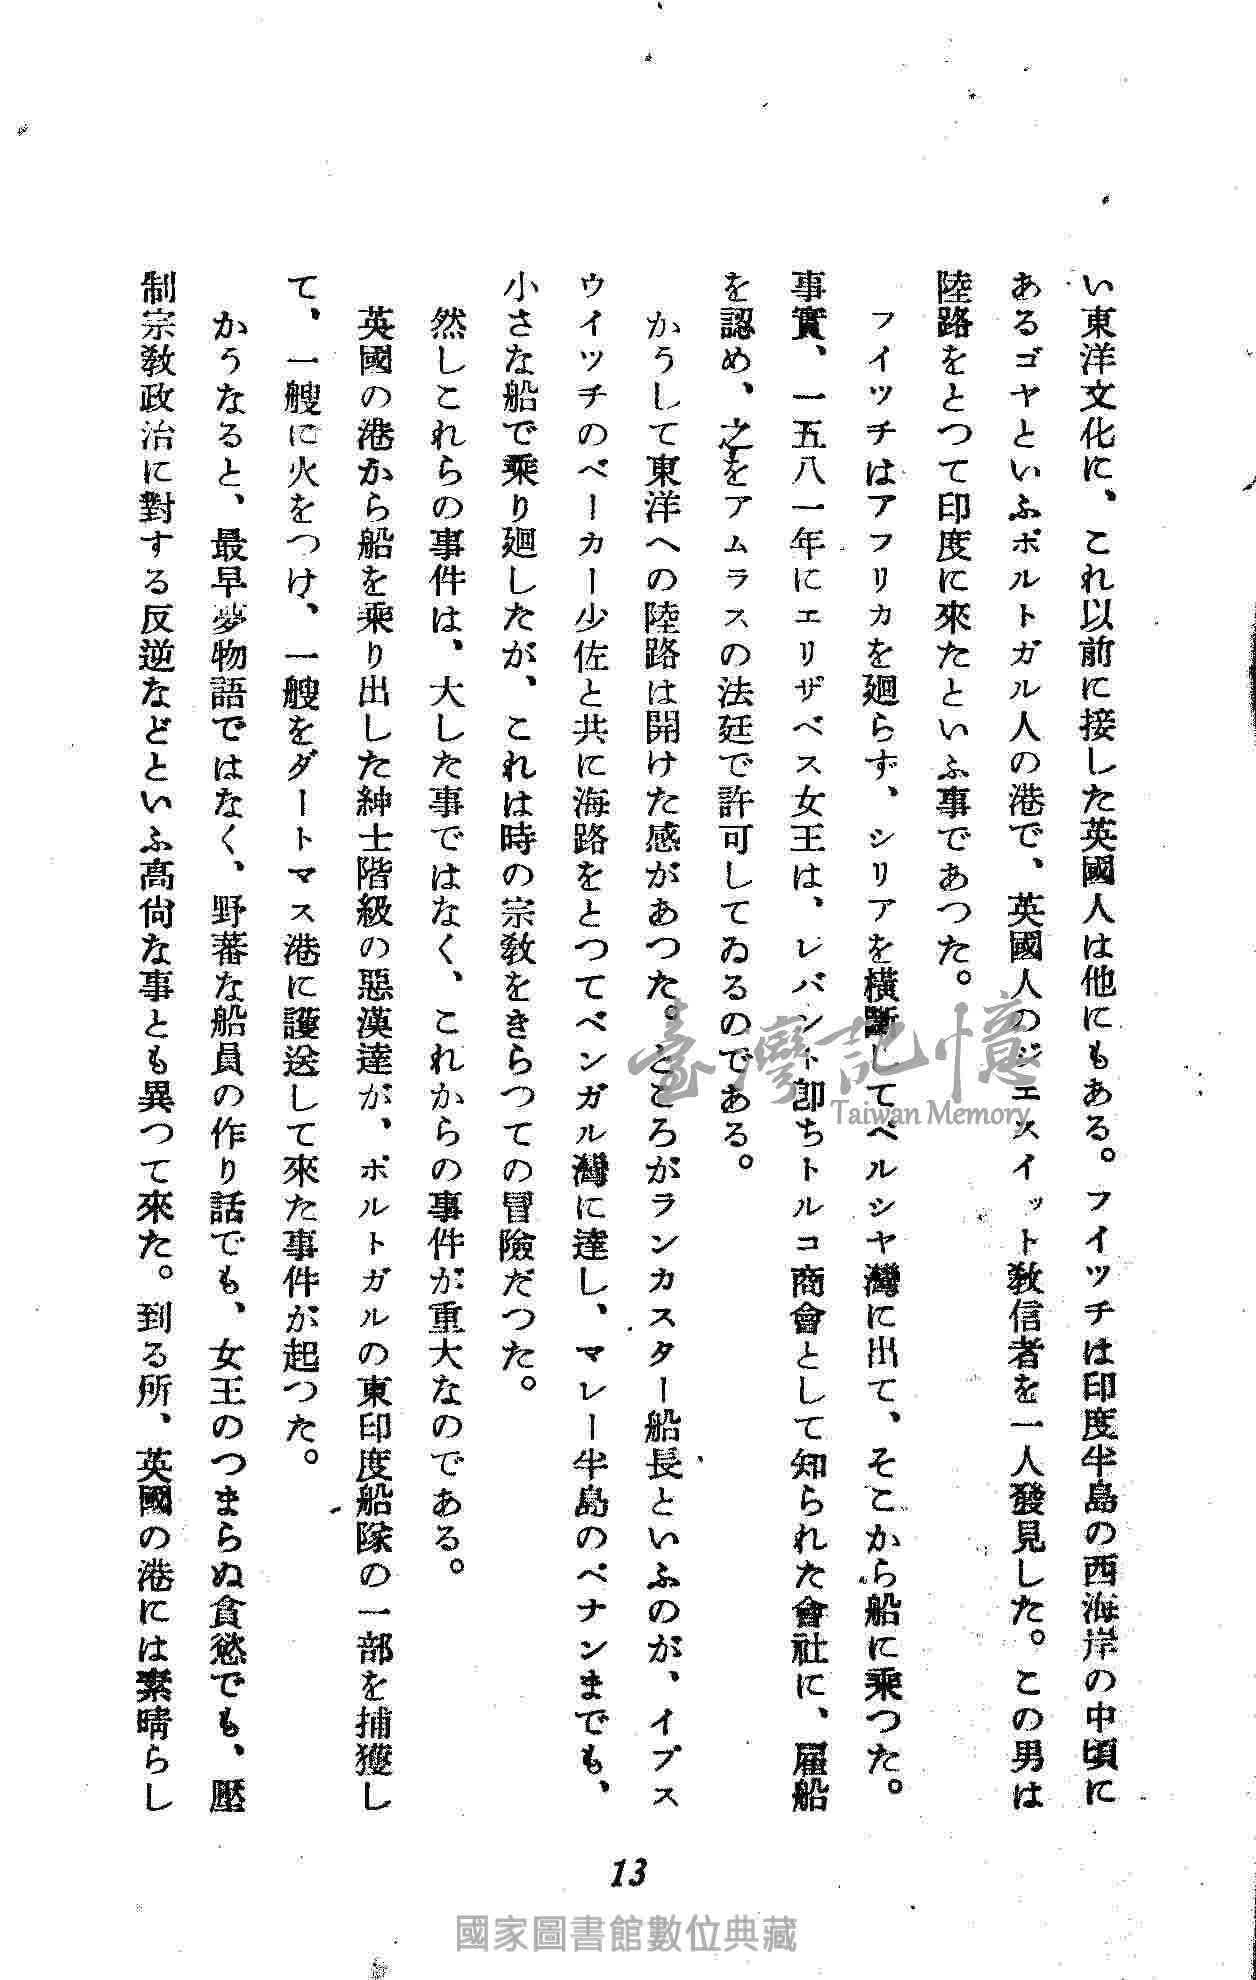 い東洋文化に、これ以前に接した英國人は他にもある。フイツチは印度半島の西海岸の中頃に
あるゴヤといふポルトガル人の港で、英國人のジエスイット敎信者を一人發見した。この男は
陸路をとつて印度に來たといふ事であつた。
フイツチはアフリカを廻らず、シリアを橫斷してペルシヤ灣に出て、そこから船に乘つた。
事實、一五八一年にエリザベス女王は、レバント卽ちトルコ商會として知られた會社に、雇船
を認め、之をアムラスの法廷で許可してゐるのである。
かうして東洋への陸路は開けた感があつた。ところがランカスター船長といふのが、イプス
ウイツチのベーカー少佐と共に海路をとつてベンガル灣に達し、マレー半島のペナンまでも、
小さな船で乘り廻したが、これは時の宗敎をきらつての冒險だつた。
然しこれらの事件は、大した事ではなく、これからの事件が重大なのである。
英國の港から船を乘り出した紳士階級の惡漢達が、ポルトガルの東印度船隊の一部を捕獲し
て、一艘に火をつけ、一艘をダートマス港に護送して來た事件が起つた。
かうなると、最早夢物語ではなく、野蕃な船員の作り話でも、女王のつまらぬ貪慾でも、壓
制宗敎政治に對する反逆などといふ高尙な事とも異つて來た。到る所、英國の港には素晴らし
13
臺灣記憶
Taiwan Memory
國家圖書館數位典藏